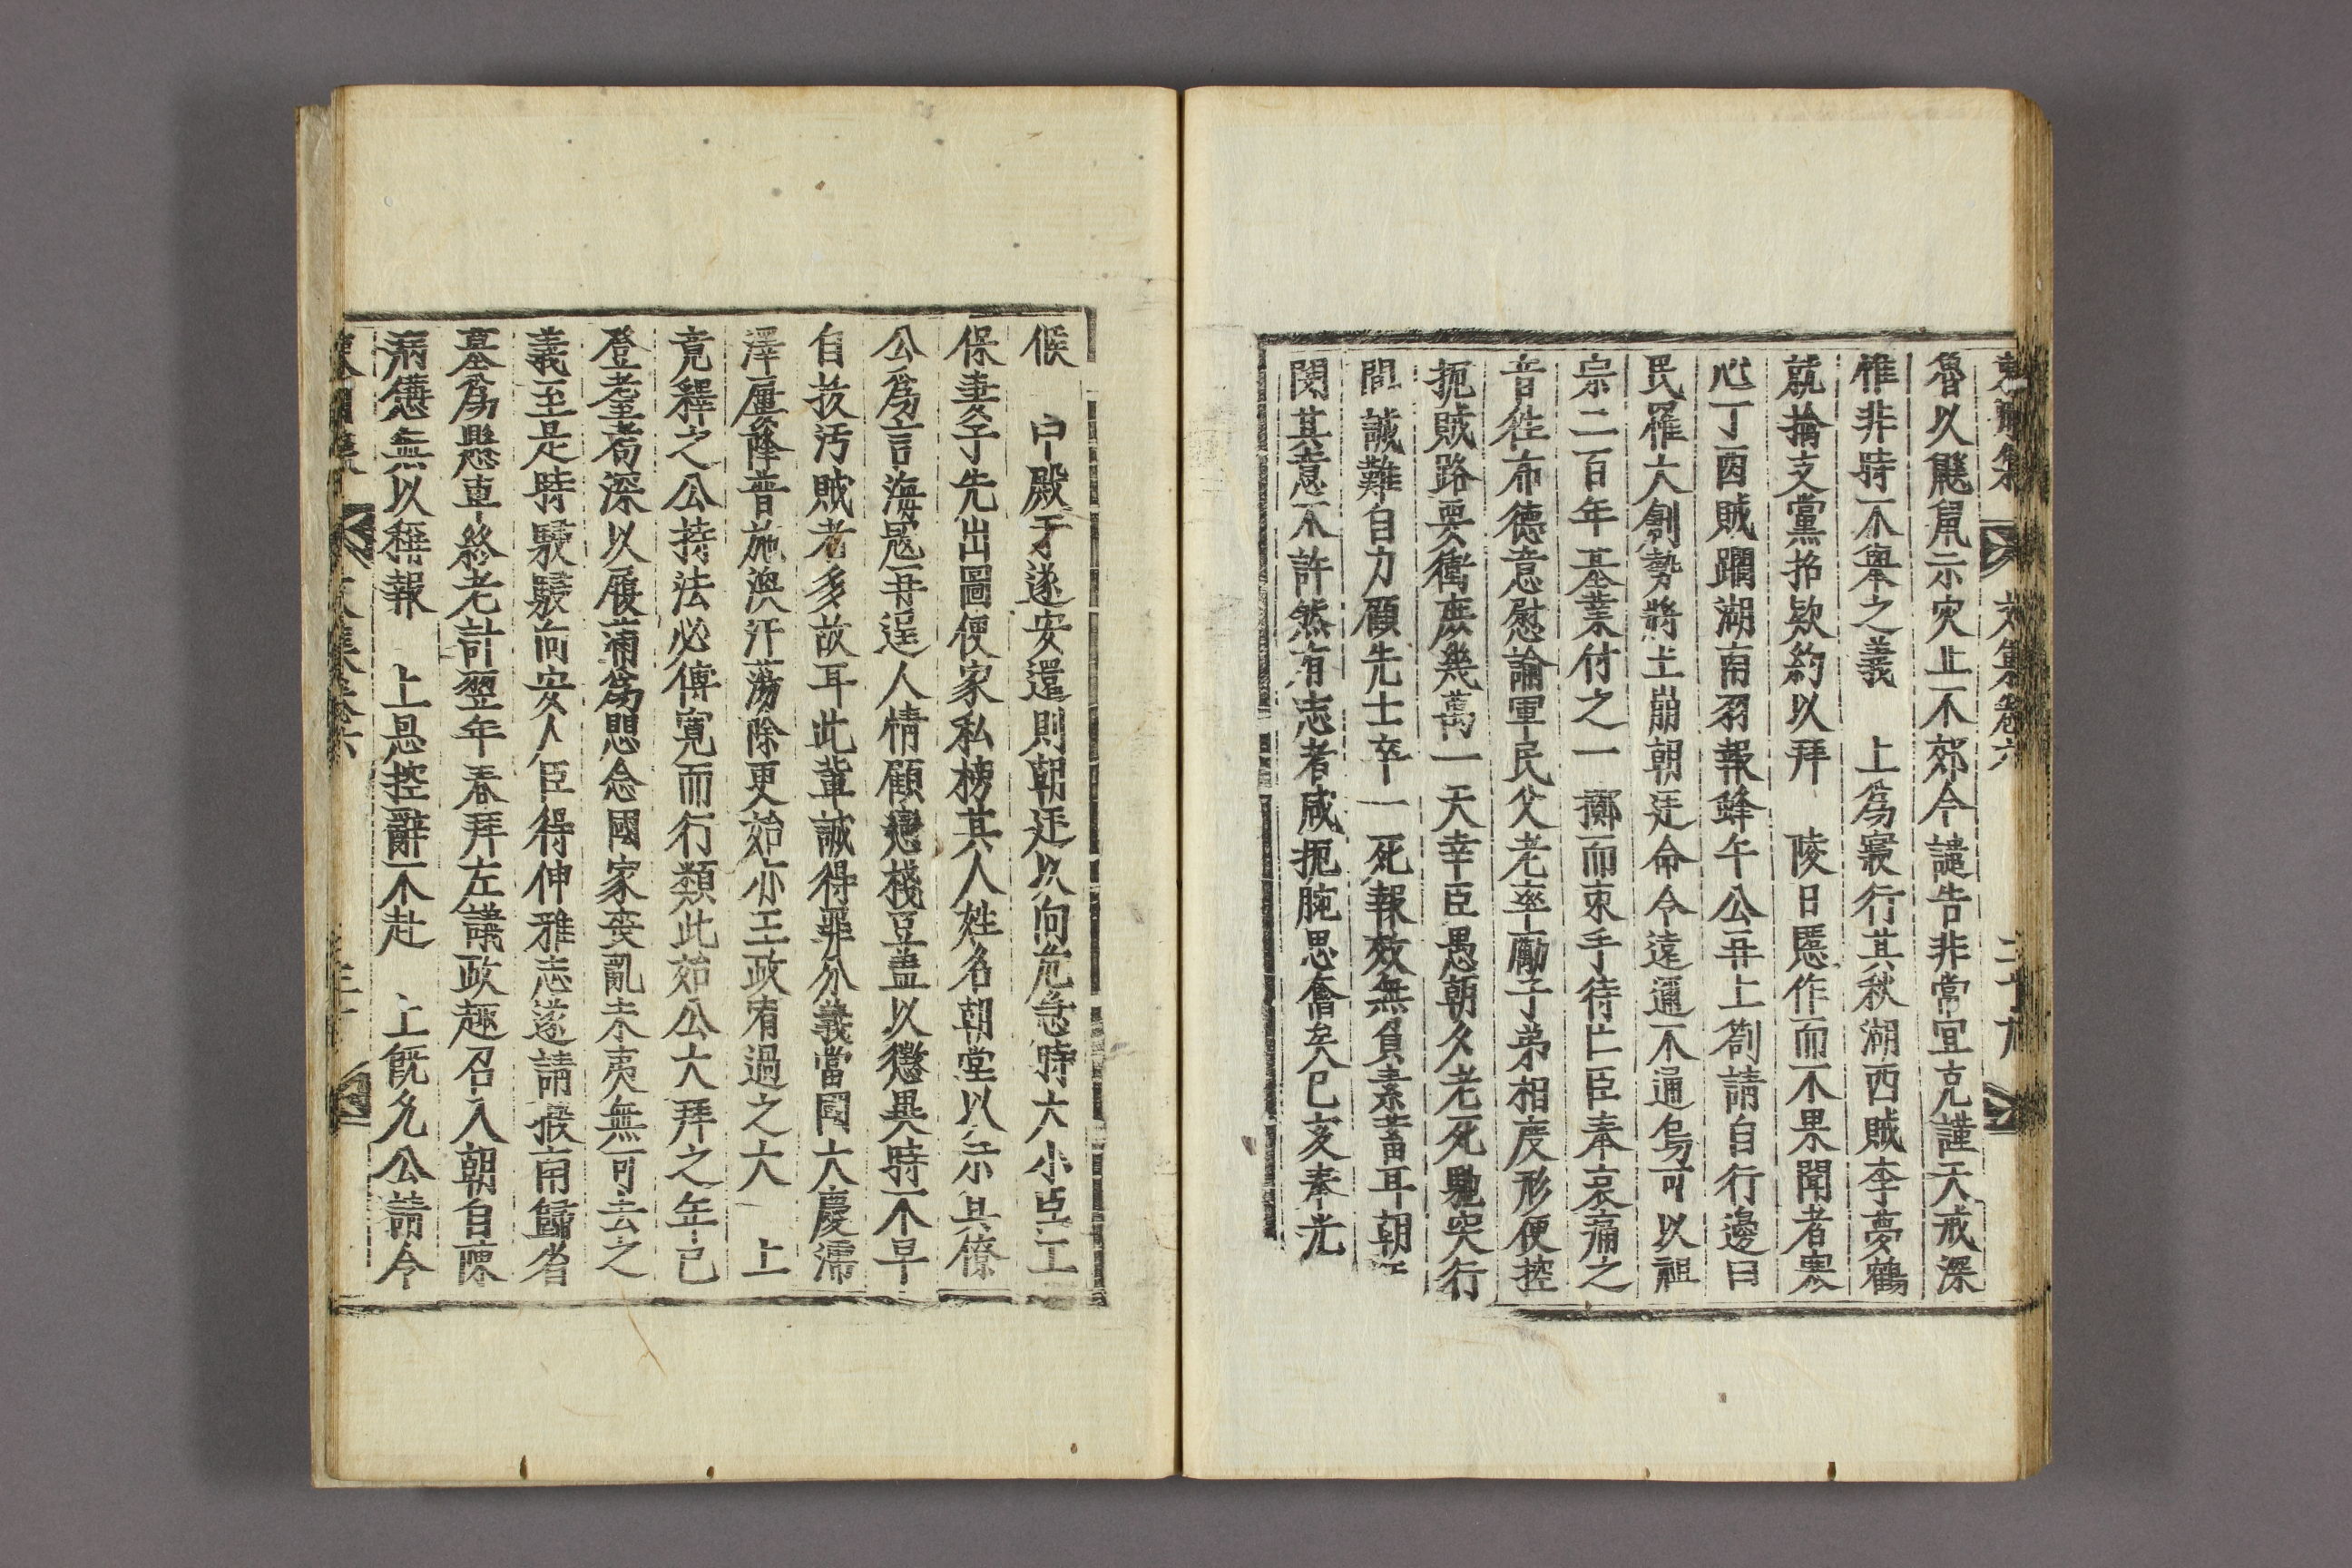 文集卷六 二十九
魯以鼷鼠示灾止不郊今譴告非常宜克謹天戒深
惟非時不舉之義 上爲寢行其秋湖西賊李夢鶴
就擒支黨招欵約以拜 陵日慝作而不果聞者寒
心丁酉賊躪湖南羽報蜂午公再上箚請自行邊曰
民罹大創勢將土崩朝廷命令遠邇不通烏可以祖
宗二百年基業付之一擲而束手待亡臣奉哀痛之
音徃布德意慰諭軍民父老率勵子弟相度形便控
扼賊路要衝庶幾萬一天幸臣愚朝夕老死馳突行
間誠難自力願先士卒一死報效無負素蓄耳朝
閔其意不許然有志者咸扼腕思奮矣己亥奉光
候 中殿于遂安還則朝廷以向危急時大小臣工
保妻子先出圖便家私榜其人姓名朝堂以示具僚
公爲言海寇再逞人情顧戀棧豆盖以懲異時不早
自拔汚賊老多故耳此輩誠得罪分義當國大慶濡
澤屢降普施渙汗蕩除更始亦王政宥過之大 上
竟釋之公持法必傅寬而行類此始公大拜之年已
登耋耉深以履滿爲惧念國家喪亂未夷無可去之
義至是時駸駸向安人臣得伸雅志遂請假南歸省
墓爲懸車終老計翌年春拜左議政趣召入朝自陳
病憊無以稱報 上恳控辭不赴 上旣免公請令
文集卷六 三十